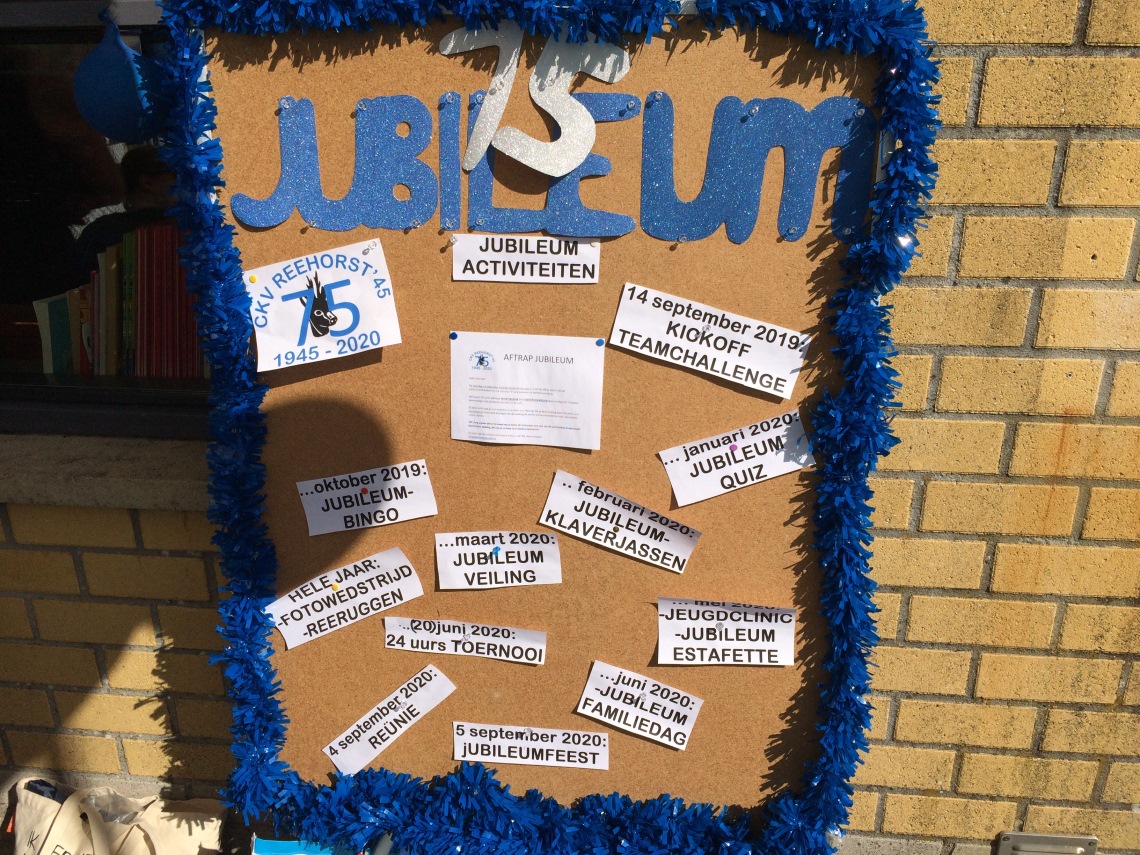 75
JUBILEUM
JUBILEUM
ACTIVITEITEN
CKV REEHORST '45
75
1945 - 2020
14 september 2019:
KICKOFF
TEAMCHALLENGE
AFTRAP JUBILEUM
... januari 2020:
JUBILEUM
QUIZ
...oktober 2019:
JUBILEUM-
BINGO
.. februari 2020:
JUBILEUM-
KLAVERJASSEN
...maart 2020:
JUBILEUM
VEILING
HELE JAAR:
-FOTOWEDSTRIJD
-REERUGGEN
...(20)juni 2020:
24 uurs TOERNOOI
... mei 2020:
-JEUGDCLINIC
-JUBILEUM
ESTAFETTE
...juni 2020:
-JUBILEUM
FAMILIEDAG
4 september 2020:
REÜNIE
5 september 2020:
jUBILEUMFEEST